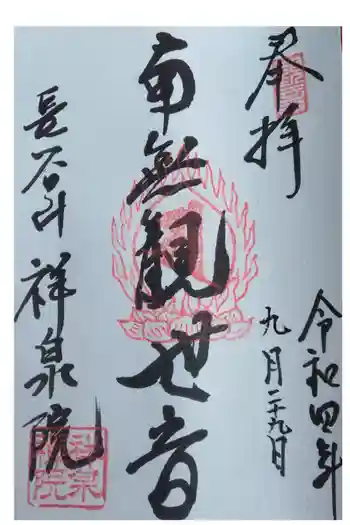 奉拝
令和四年
九月二十九日
南無觀世音
長谷山祥泉院
祥泉
院